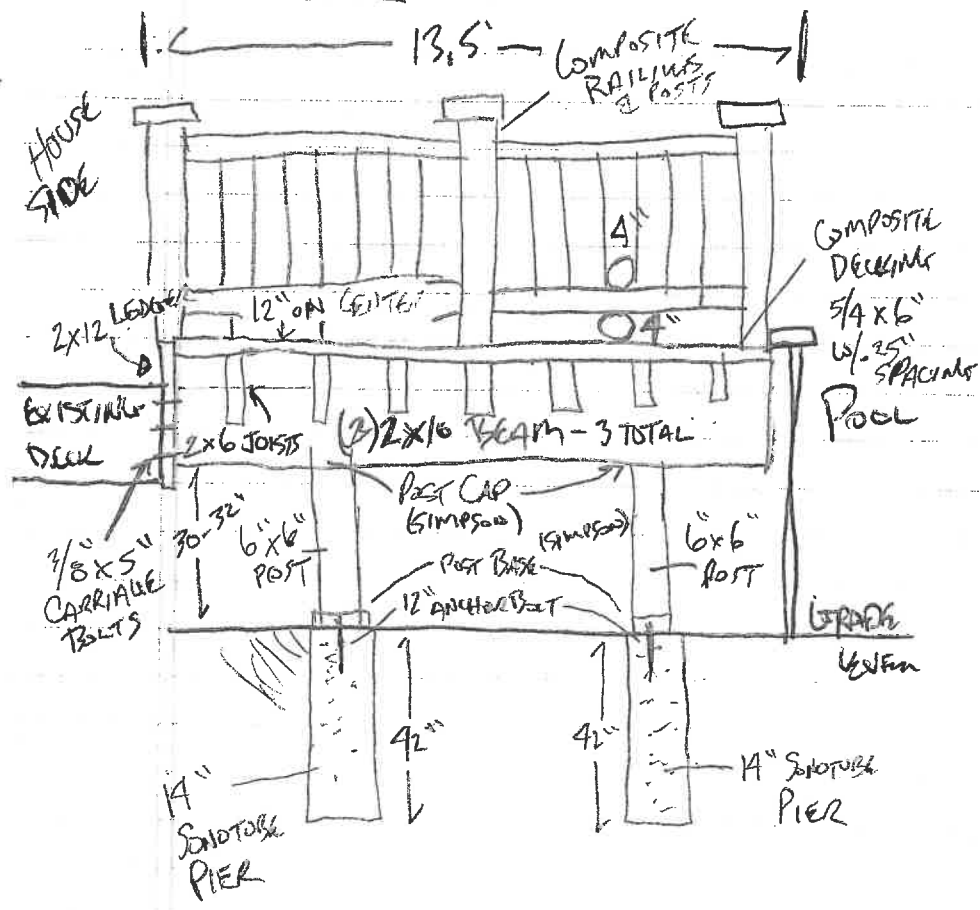 13.5'
COMPOSITE
RAILINGS
& POSTS
HOUSE
SIDE
4"
COMPOSITE
DECKING
5/4 x 6"
w/.25"
SPACING
2x12 LEDGER
12" ON CENTER
4"
POOL
EXISTING
DECK
2x6 JOISTS
(2) 2x10 BEAM - 3 TOTAL
POST CAP
(SIMPSON)
30-32"
6"x6"
POST
3/8" x 5"
CARRIAGE
BOLTS
POST BASE (SIMPSON)
12" ANCHOR BOLT
6"x6"
POST
GRADE
LEVEL
42"
42"
14"
SONOTUBE
PIER
14" SONOTUBE
PIER